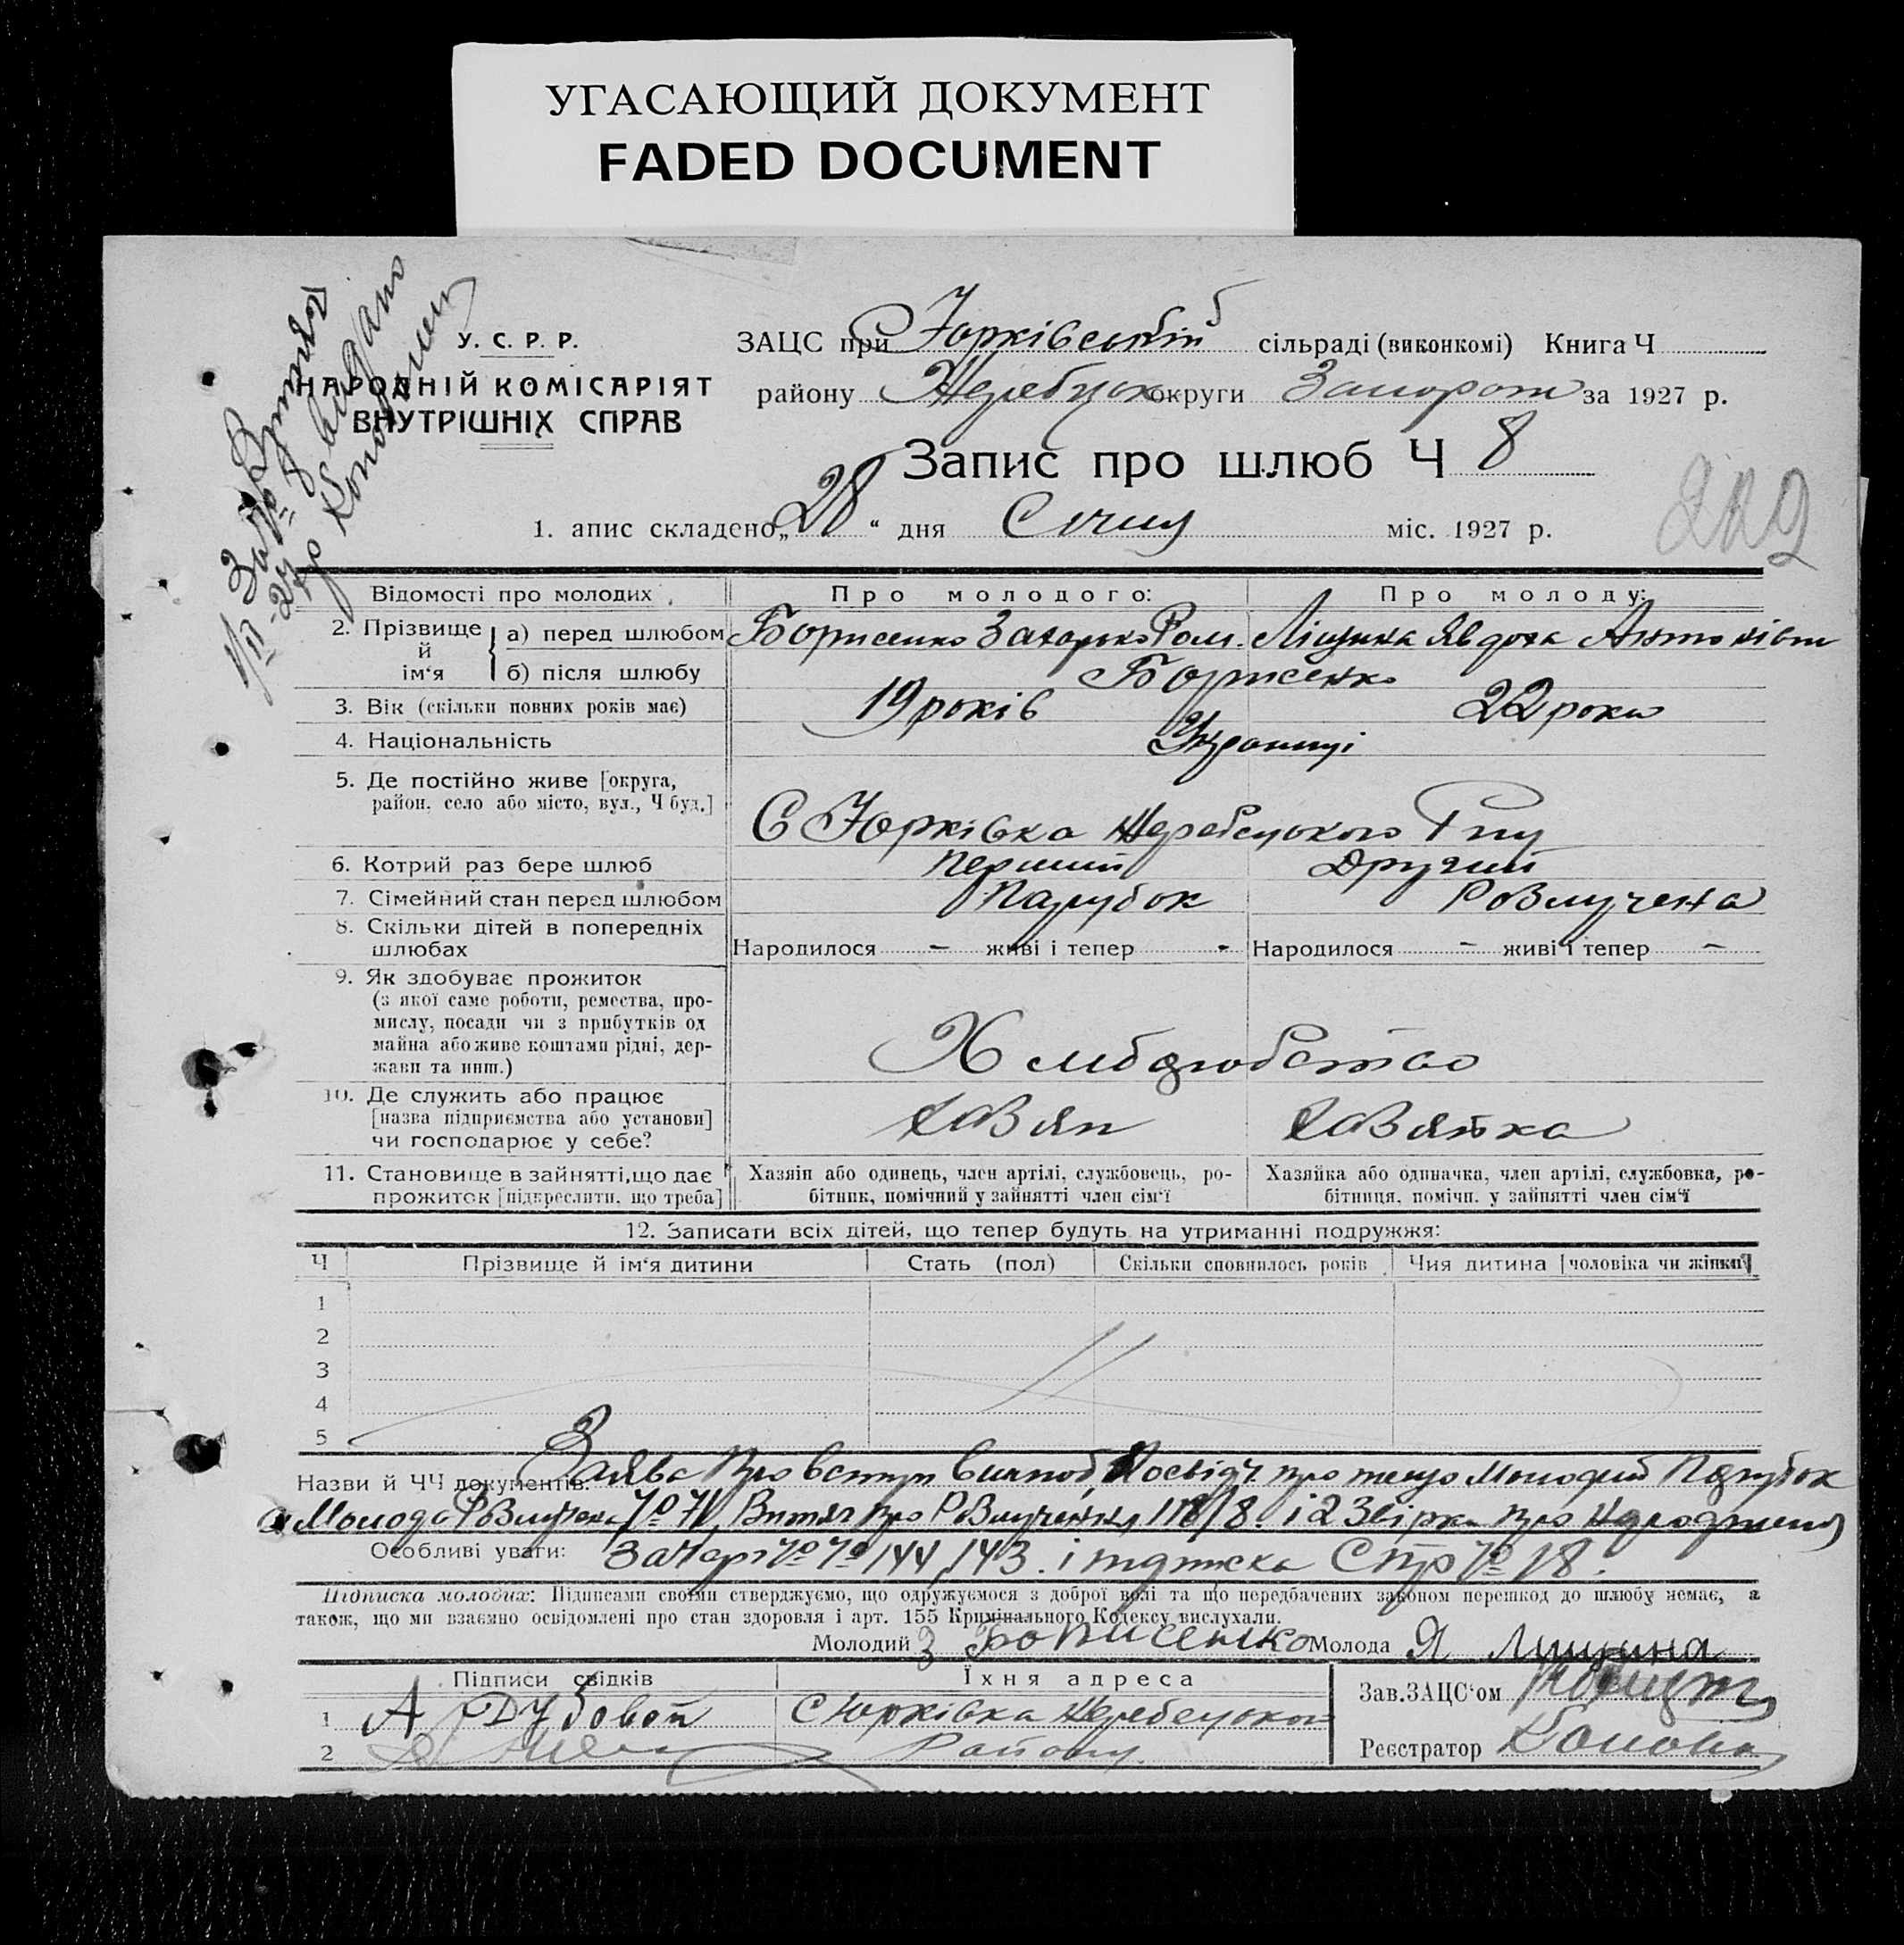 УГАСАЮЩИЙ ДОКУМЕНТ
FADED DOCUMENT
Витяг
За № 8 видано
У. С. Р. Р.
НАРОДНІЙ КОМІСАРІЯТ
ВНУТРІШНІХ СПРАВ
ЗАЦС при Юрківській сільраді (виконкомі) Книга Ч
району Жеребецьк округи Запорож за 1927 р.
Запис про шлюб Ч 8
1. апис складено „28“ дня Січня міс. 1927 р.
Відомості про молодих Про молодого: Про молоду:
2. Прізвище й ім'я а) перед шлюбом Борисенко Захарько Ром. Ліщина Явдоха Антонівт
б) після шлюбу Борисенко
3. Вік (скільки повних років має) 19 років 22 роки
4. Національність Українці
5. Де постійно живе [округа,
район. село або місто, вул., Ч буд.] С Юрківка Жеребецького Р-ну
6. Котрий раз бере шлюб Перший Другий
7. Сімейний стан перед шлюбом Парубок Розлучена
8. Скільки дітей в попередніх
шлюбах Народилося – живі і тепер - Народилося – живі і тепер –
9. Як здобуває прожиток
(з якої саме роботи, ремества, про-
мислу, посади чи з прибутків од
майна або живе коштами рідні, дер-
жави та инш.) Хлібдробство
10. Де служить або працює
[назва підприємства або установи]
чи господарює у себе? Хазяін Хазяйка
11. Становище в зайнятті, що дає
прожиток [підкреслити, що треба]
Хазяїн або одинець, член артілі, службовець, ро-
бітник, помічний у зайнятті член сім'ї
Хазяйка або одиначка, член артілі, службовка, ро-
бітниця. помічн. у зайнятті член сім'ї
12. Записати всіх дітей, що тепер будуть на утриманні подружжя:
Ч Прізвище й ім'я дитини Стать (пол) Скільки сповнилось років Чия дитина [чоловіка чи жінки]
1
2
3
4
5
Назви й ЧЧ документів: Заява про вступ в шлюб, Посвідч про те що Молодий Парубок
а Молода Розлучена № 71, Витяг про Розлучення 118/8. і 2 Звірки про Народження
Особливі уваги: За Чергі №№ 144, 143. і підписка Стр № 18.
Підписка молодих: Підписами своїми стверджуємо, що одружуємося з доброї волі та що передбачених законом перешкод до шлюбу немає, а
також, що ми взаємно освідомлені про стан здоровля і арт. 155 Кримінального Кодексу вислухали.
Молодий З Борисенко Молода Я Лищина
Підписи свідків Їхня адреса
Зав. ЗАЦС'ом
1 А Дубовой С Юрківка Жеребецького
2 Району
Реєстратор